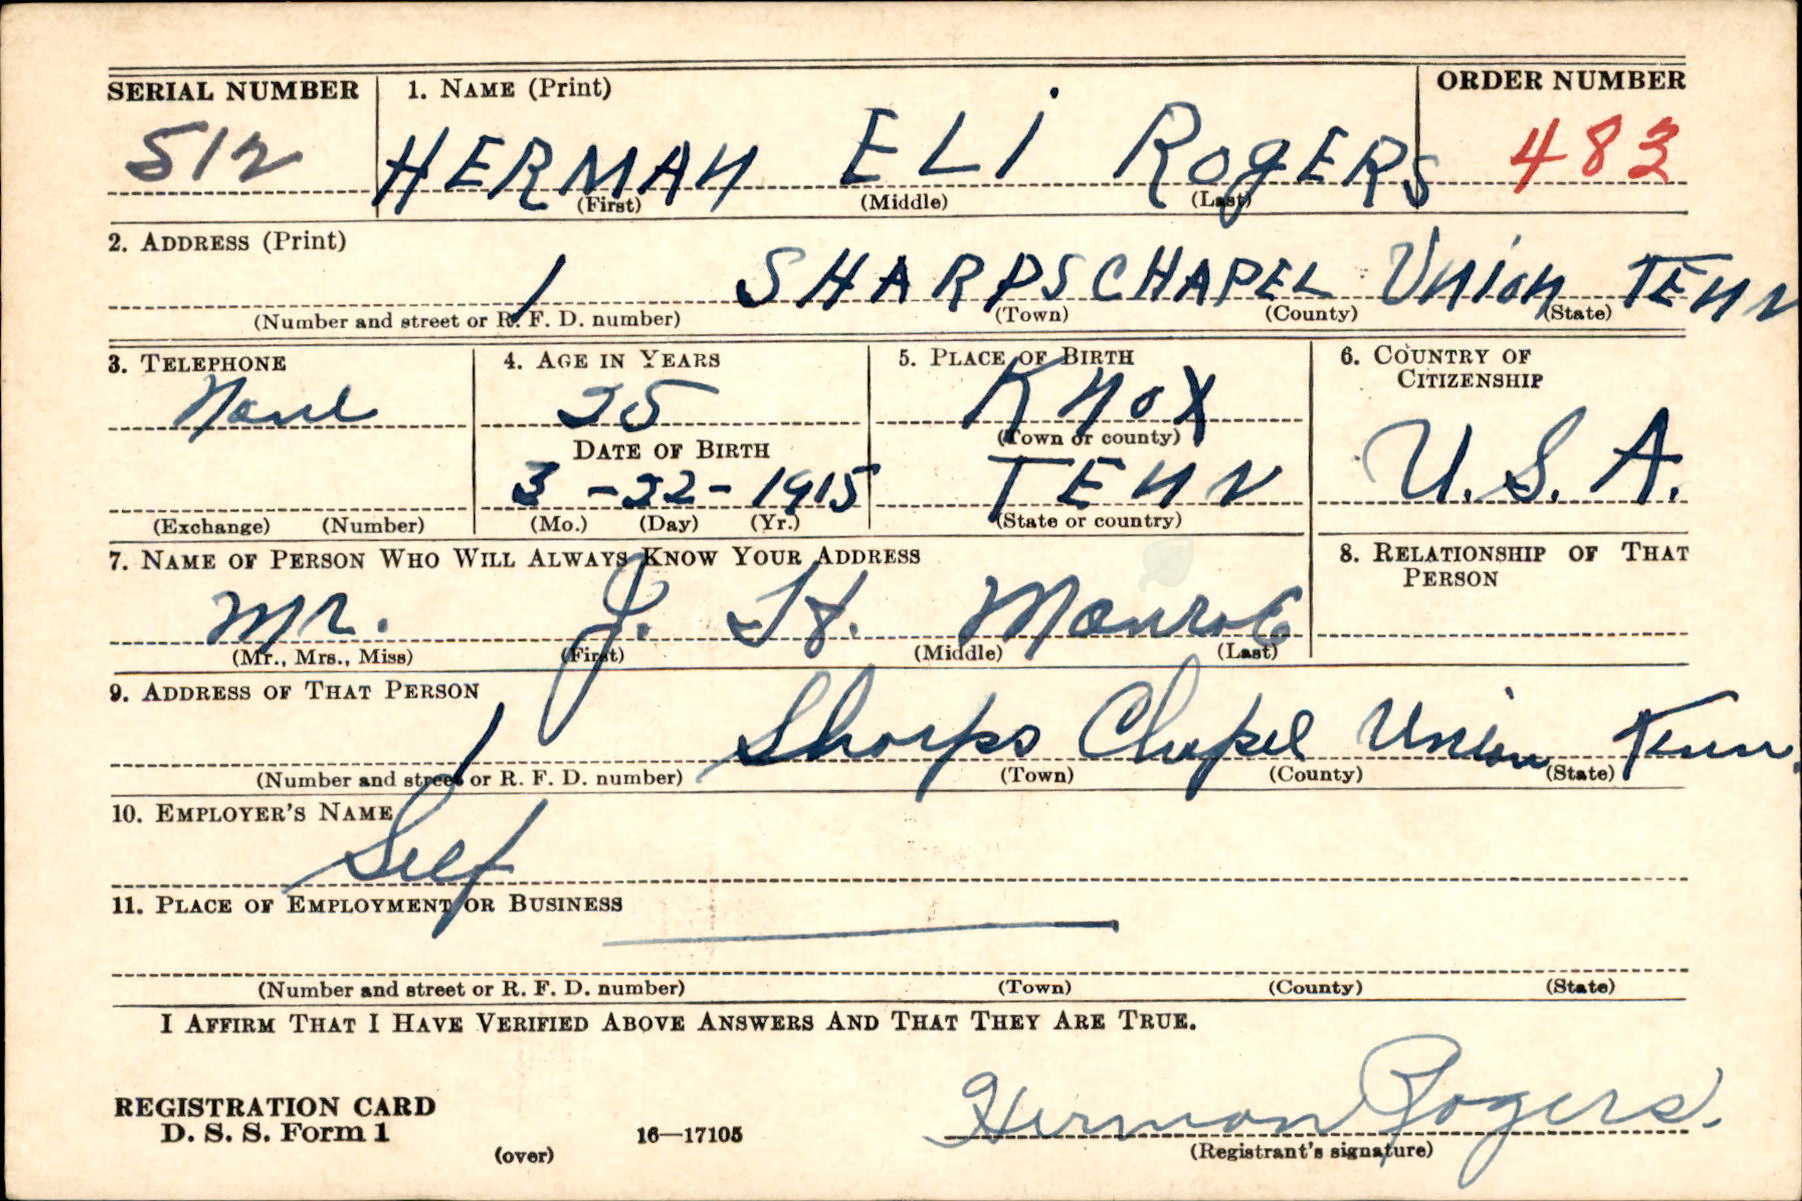 SERIAL NUMBER 1. NAME (Print) ORDER NUMBER
512 HERMAN ELI ROgERS 483
(First) (Middle) (Last)
2. ADDRESS (Print)
1 SHARPSCHAPEL Union TENN
(Number and street or R. F. D. number) (Town) (County) (State)
3. TELEPHONE 4. AGE IN YEARS 5. PLACE OF BIRTH 6. COUNTRY OF CITIZENSHIP
None 25 KNOX U.S.A.
(Town or county)
DATE OF BIRTH
3-22-1915 TENN
(Exchange) (Number) (Mo.) (Day) (Yr.) (State or country)
7. NAME OF PERSON WHO WILL ALWAYS KNOW YOUR ADDRESS 8. RELATIONSHIP OF THAT PERSON
Mr. J. H. Monroe
(Mr., Mrs., Miss) (First) (Middle) (Last)
9. ADDRESS OF THAT PERSON
1 Sharps Chapel Union Tenn.
(Number and street or R. F. D. number) (Town) (County) (State)
10. EMPLOYER'S NAME
Self
11. PLACE OF EMPLOYMENT OR BUSINESS
(Number and street or R. F. D. number) (Town) (County) (State)
I AFFIRM THAT I HAVE VERIFIED ABOVE ANSWERS AND THAT THEY ARE TRUE.
REGISTRATION CARD
D. S. S. Form 1 16—17105 Herman Rogers.
(over) (Registrant's signature)